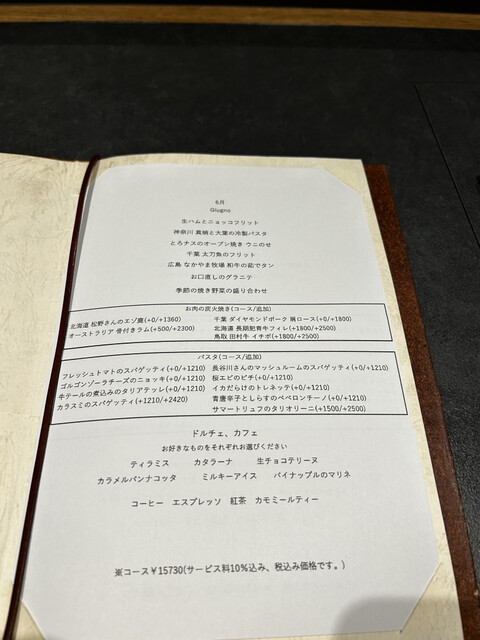 6月
Giugno
生ハムとニョッコフリット
神奈川 真蛸と大葉の冷製パスタ
とろナスのオーブン焼き ウニのせ
千葉 太刀魚のフリット
広島 なかやま牧場 和牛の茹でタン
お口直しのグラニテ
季節の焼き野菜の盛り合わせ
お肉の炭火焼き(コース/追加)
北海道 松野さんのエゾ鹿(+0/+1360) 千葉 ダイヤモンドポーク 肩ロース(+0/+1800)
オーストラリア 骨付きラム(+500/+2300) 北海道 長期肥育牛フィレ(+1800/+2500)
鳥取 田村牛 イチボ(+1800/+2500)
パスタ(コース/追加)
フレッシュトマトのスパゲッティ(+0/+1210) 長谷川さんのマッシュルームのスパゲッティ(+0/+1210)
ゴルゴンゾーラチーズのニョッキ(+0/+1210) 桜エビのピチ(+0/+1210)
牛テールの煮込みのタリアテッレ(+0/+1210) イカだらけのトレネッテ(+0/+1210)
カラスミのスパゲッティ(+1210/+2420) 青唐辛子としらすのペペロンチーノ(+0/+1210)
サマートリュフのタリオリーニ(+1500/+2500)
ドルチェ、カフェ
お好きなものをそれぞれお選びください
ティラミス カタラーナ 生チョコテリーヌ
カラメルパンナコッタ ミルキーアイス パイナップルのマリネ
コーヒー エスプレッソ 紅茶 カモミールティー
※コース¥15730(サービス料10%込み、税込み価格です。)